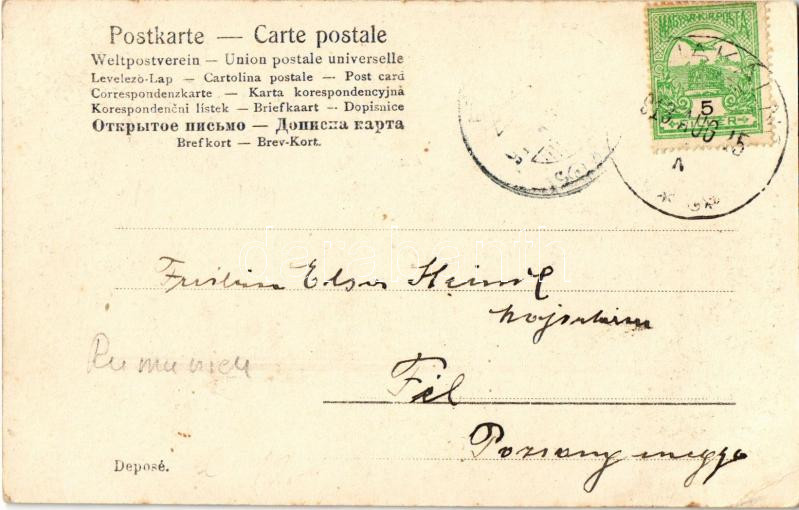 Postkarte — Carte postale
Weltpostverein — Union postale universelle
Levelező-Lap — Cartolina postale — Post card
Correspondenzkarte — Karta korespondencyjna
Korespondenční lístek — Briefkaart — Dopisnice
Открытое письмо — Дописна карта
Brefkort — Brev-Kort.
MAGYAR KIR POSTA
5
913 AUG 15
A
Elsa
Fél
Pozsony megye
Deposé.